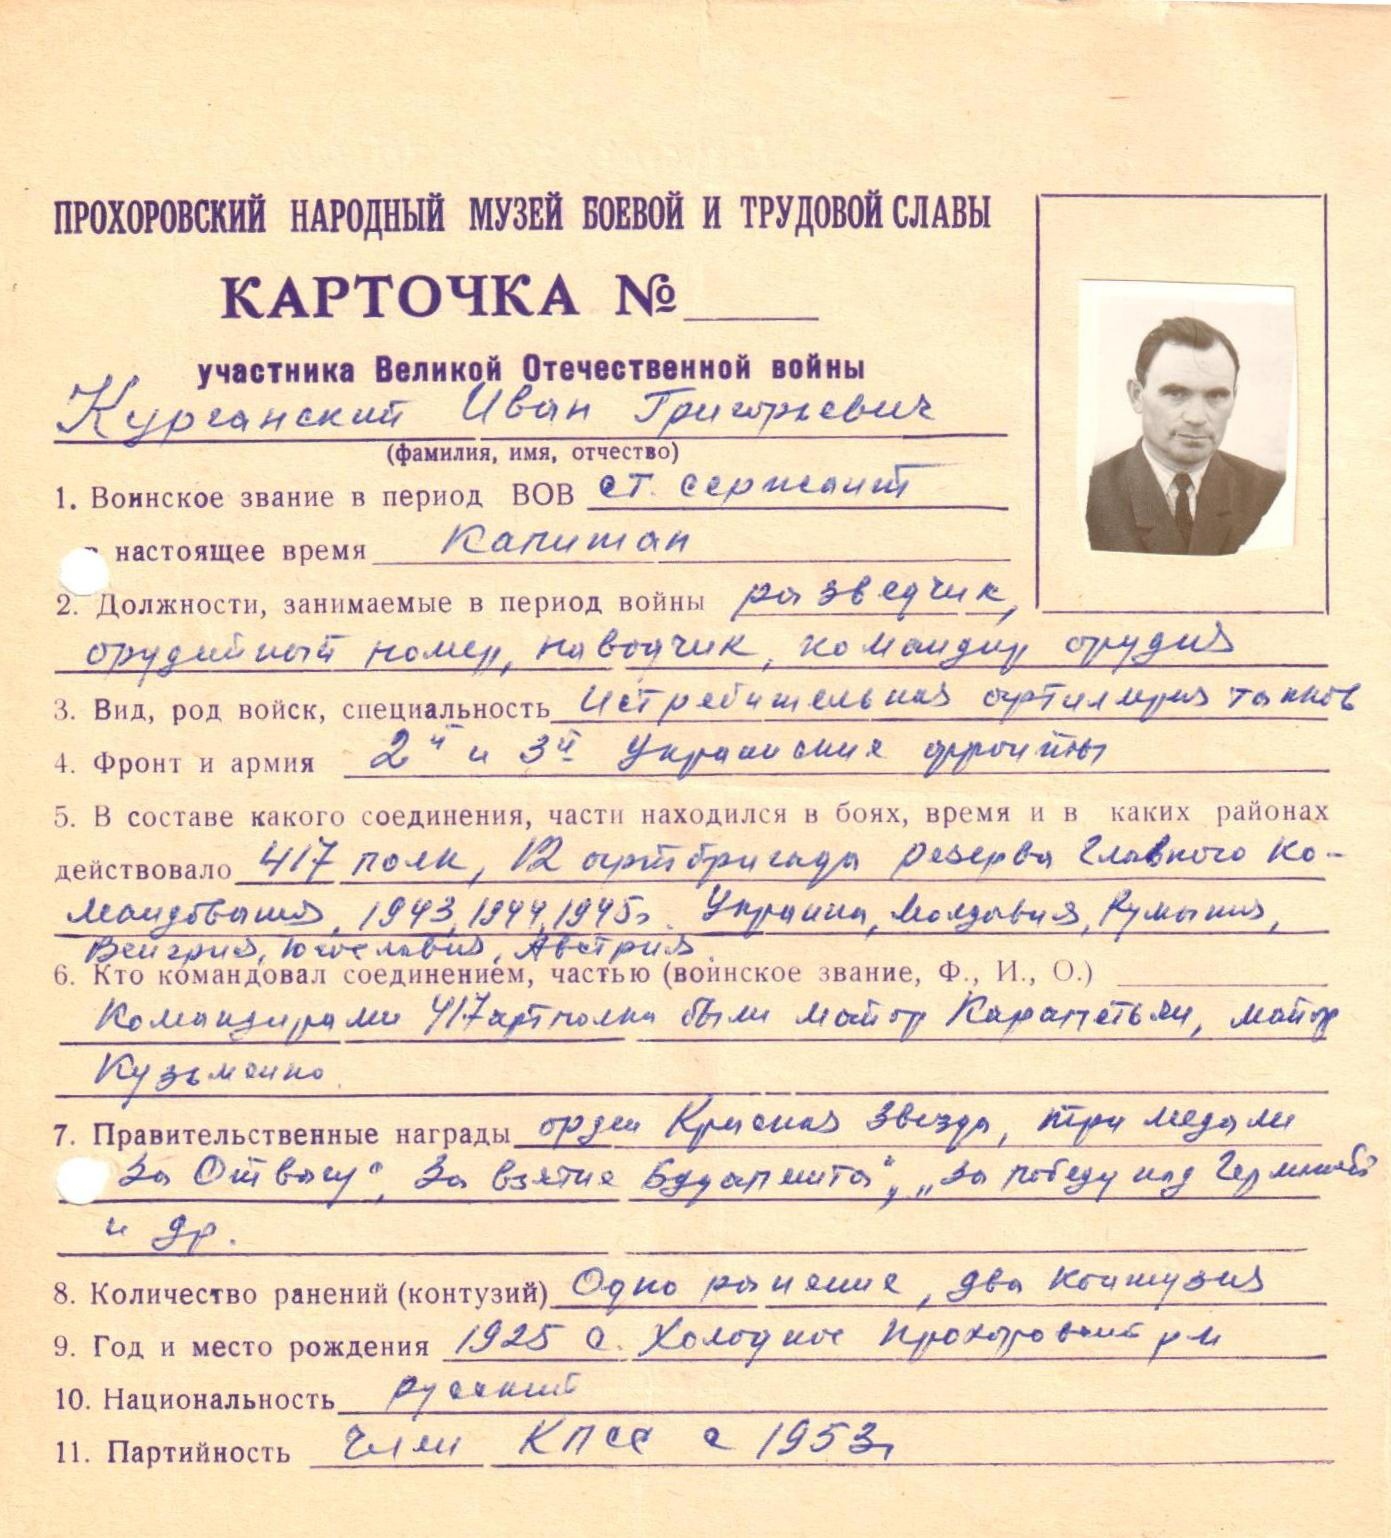 ПРОХОРОВСКИЙ НАРОДНЫЙ МУЗЕЙ БОЕВОЙ И ТРУДОВОЙ СЛАВЫ
КАРТОЧКА №
участника Великой Отечественной войны
Курганский Иван Григорьевич
(фамилия, имя, отчество)
1. Воинское звание в период ВОВ ст. сержант
в настоящее время Капитан
2. Должности, занимаемые в период войны разведчик,
орудийный номер, наводчик, командир орудия
3. Вид, род войск, специальность Истребительная артиллерия танков
4. Фронт и армия 2й и 3й Украинские фронты
5. В составе какого соединения, части находился в боях, время и в каких районах
действовало 417 полк, 12 артбригада резерва Главного Ко-
мандования, 1943, 1944, 1945г. Украина, Молдавия, Румыния,
Венгрия, Югославия, Австрия.
6. Кто командовал соединением, частью (воинское звание, Ф., И., О.)
Командирами 417 артполка были майор Карапетьян, майор
Кузьменко.
7. Правительственные награды орден Красная Звезда, три медали
За Отвагу", За взятие Будапешта", „За победу над Германией
и др.
8. Количество ранений (контузий) Одно ранение, два контузия
9. Год и место рождения 1925 с. Холодное Прохоровский р-н
10. Национальность русский
11. Партийность Член КПСС с 1953г